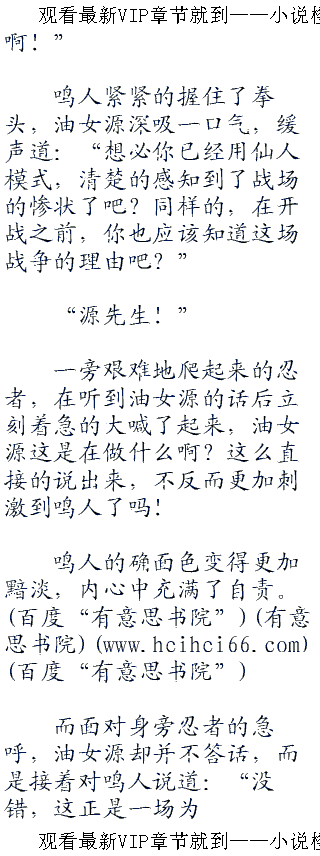 观看最新VIP章节就到——小说检
啊！”
鸣人紧紧的握住了拳
头，油女源深吸一口气，缓
声道：“想必你已经用仙人
模式，清楚的感知到了战场
的惨状了吧？同样的，在开
战之前，你也应该知道这场
战争的理由吧？”
“源先生！”
一旁艰难地爬起来的忍
者，在听到油女源的话后立
刻着急的大喊了起来，油女
源这是在做什么啊？这么直
接的说出来，不反而更加刺
激到鸣人了吗！
鸣人的确面色变得更加
黯淡，内心中充满了自责。
(百度“有意思书院”)(有意
思书院)(www.hcihci66.com)
(百度“有意思书院”)
而面对身旁忍者的急
呼，油女源却并不答话，而
是接着对鸣人说道：“没
错，这正是一场为
观看最新VIP章节就到——小说检